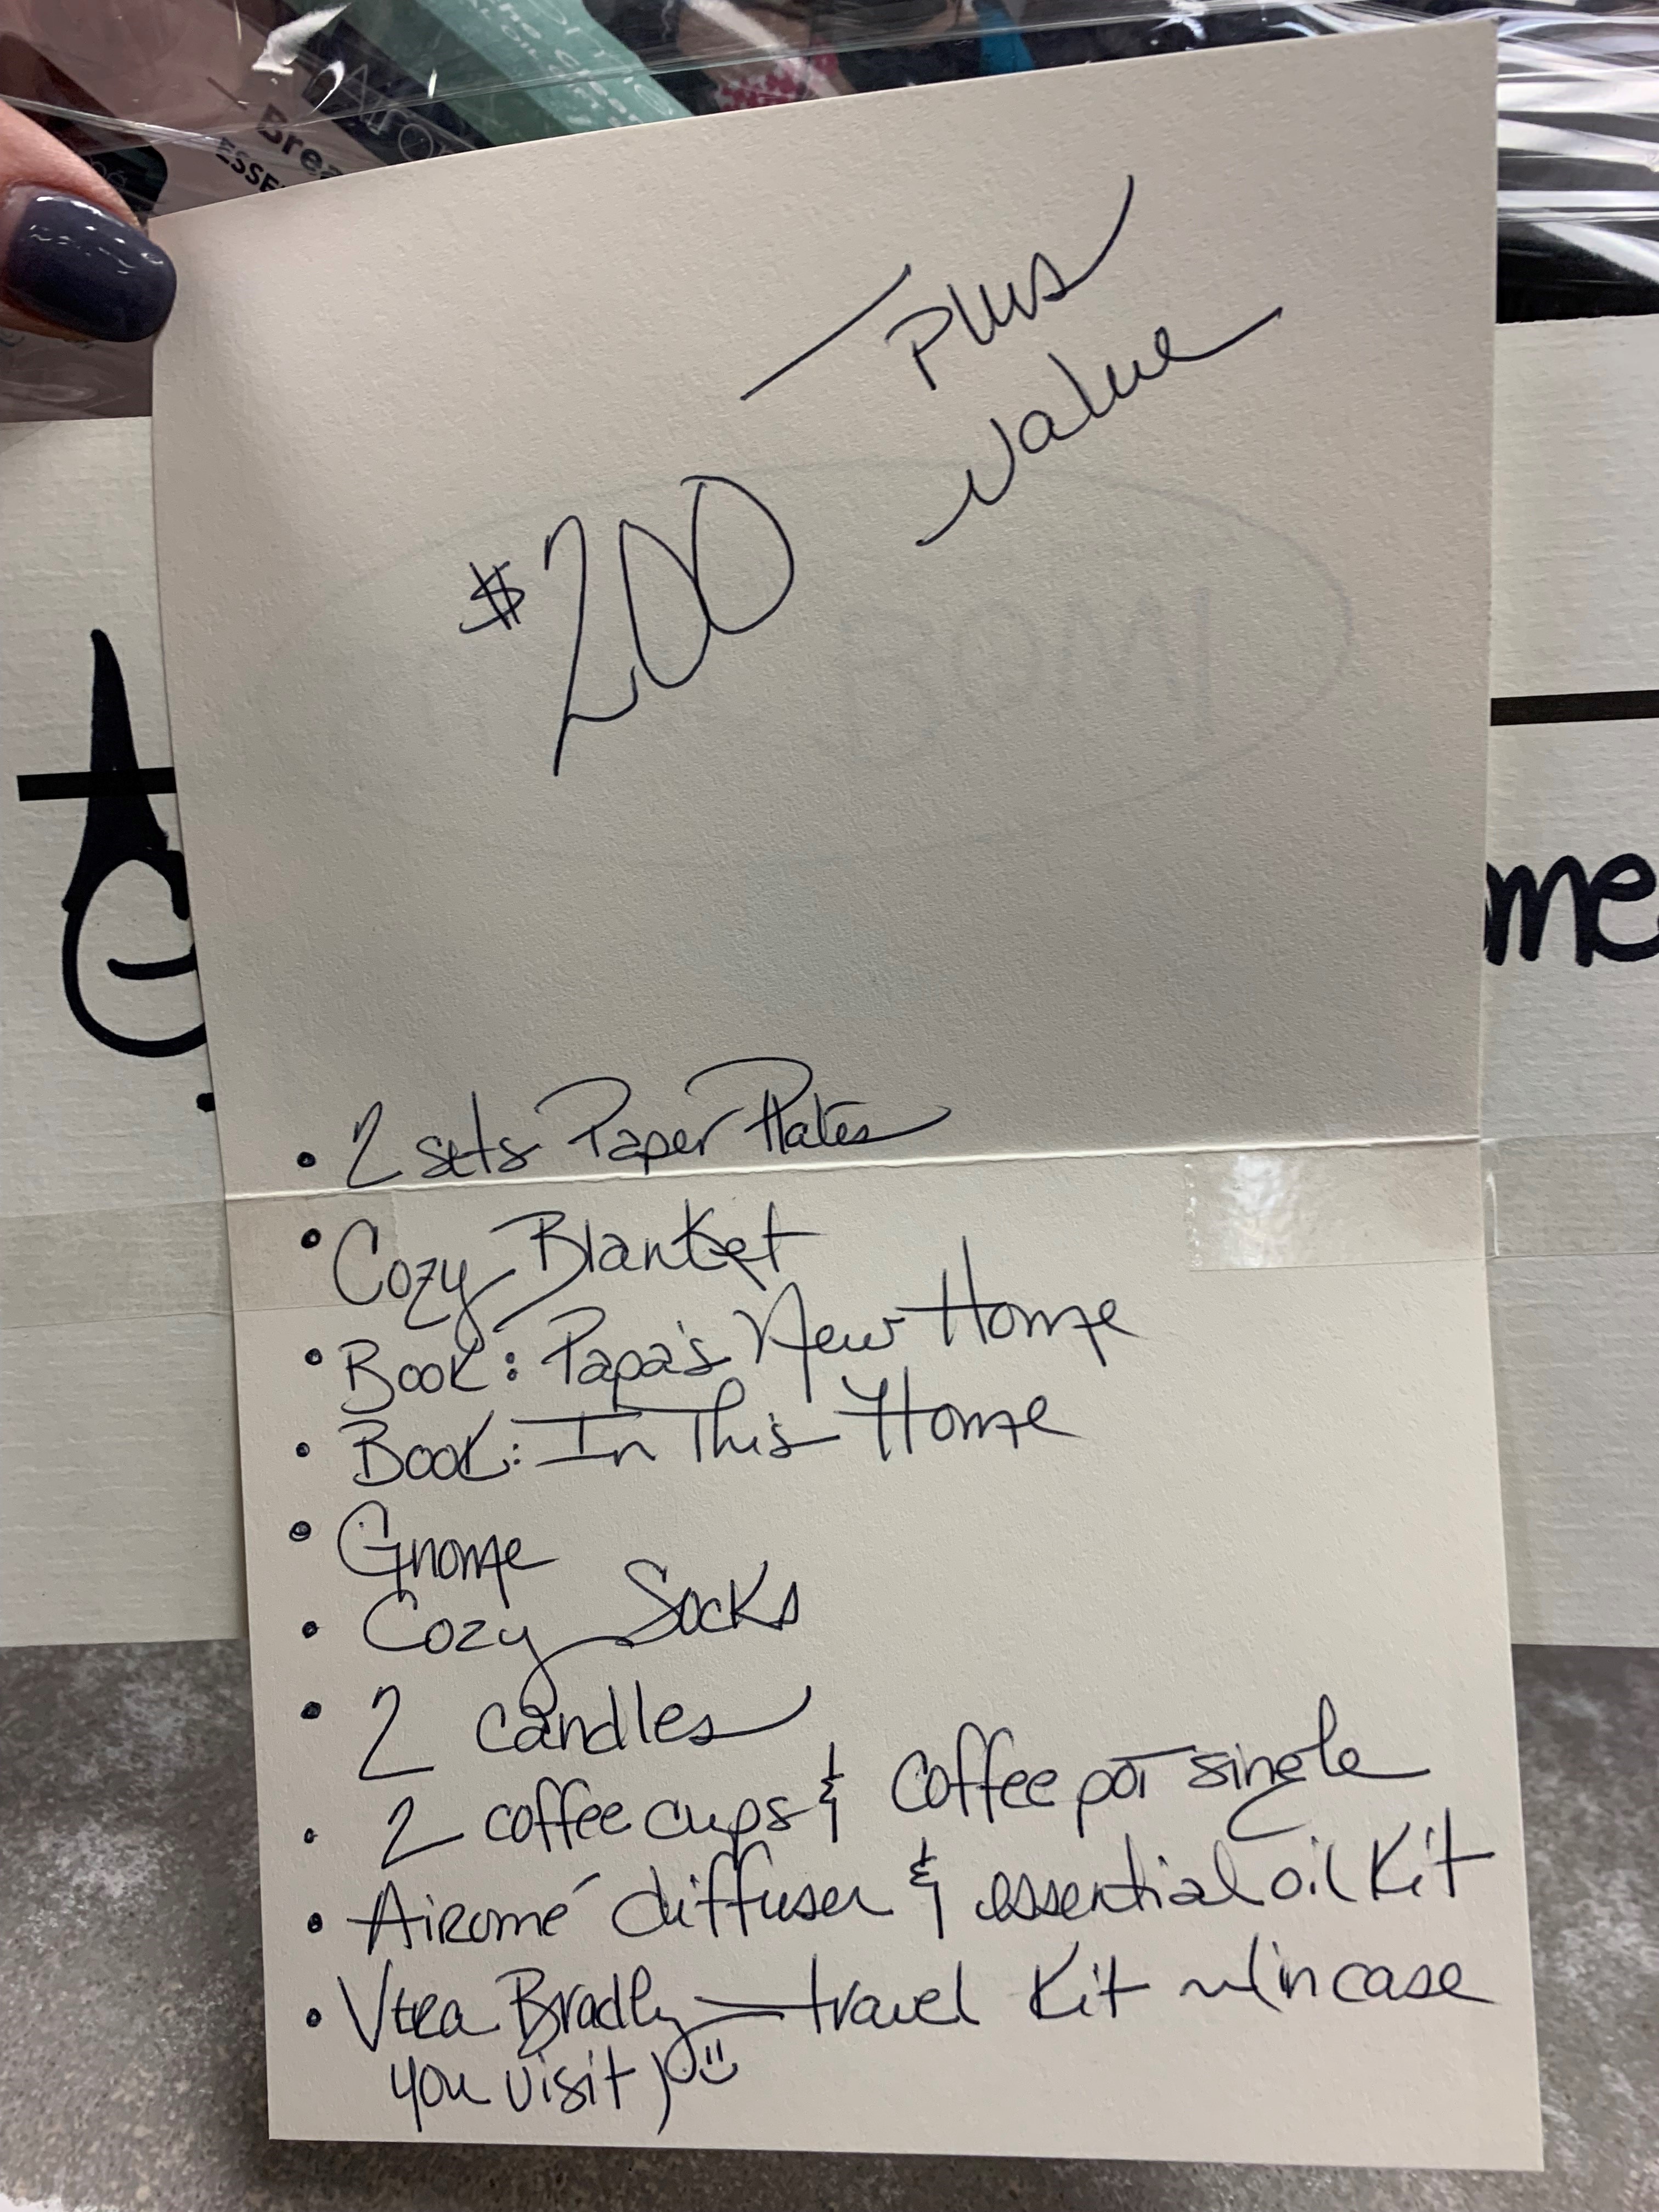 Brea
ESSE
— Plus
value
$200
• 2 sets Paper Plates
• Cozy Blanket
• Book: Papa's New Home
• Book: In This Home
• Gnome
• Cozy Socks
• 2 candles
• 2 coffee cups & coffee pot single
• Airomé diffuser & essential oil Kit
• Vera Bradly — travel Kit w/in case
you visit)
me